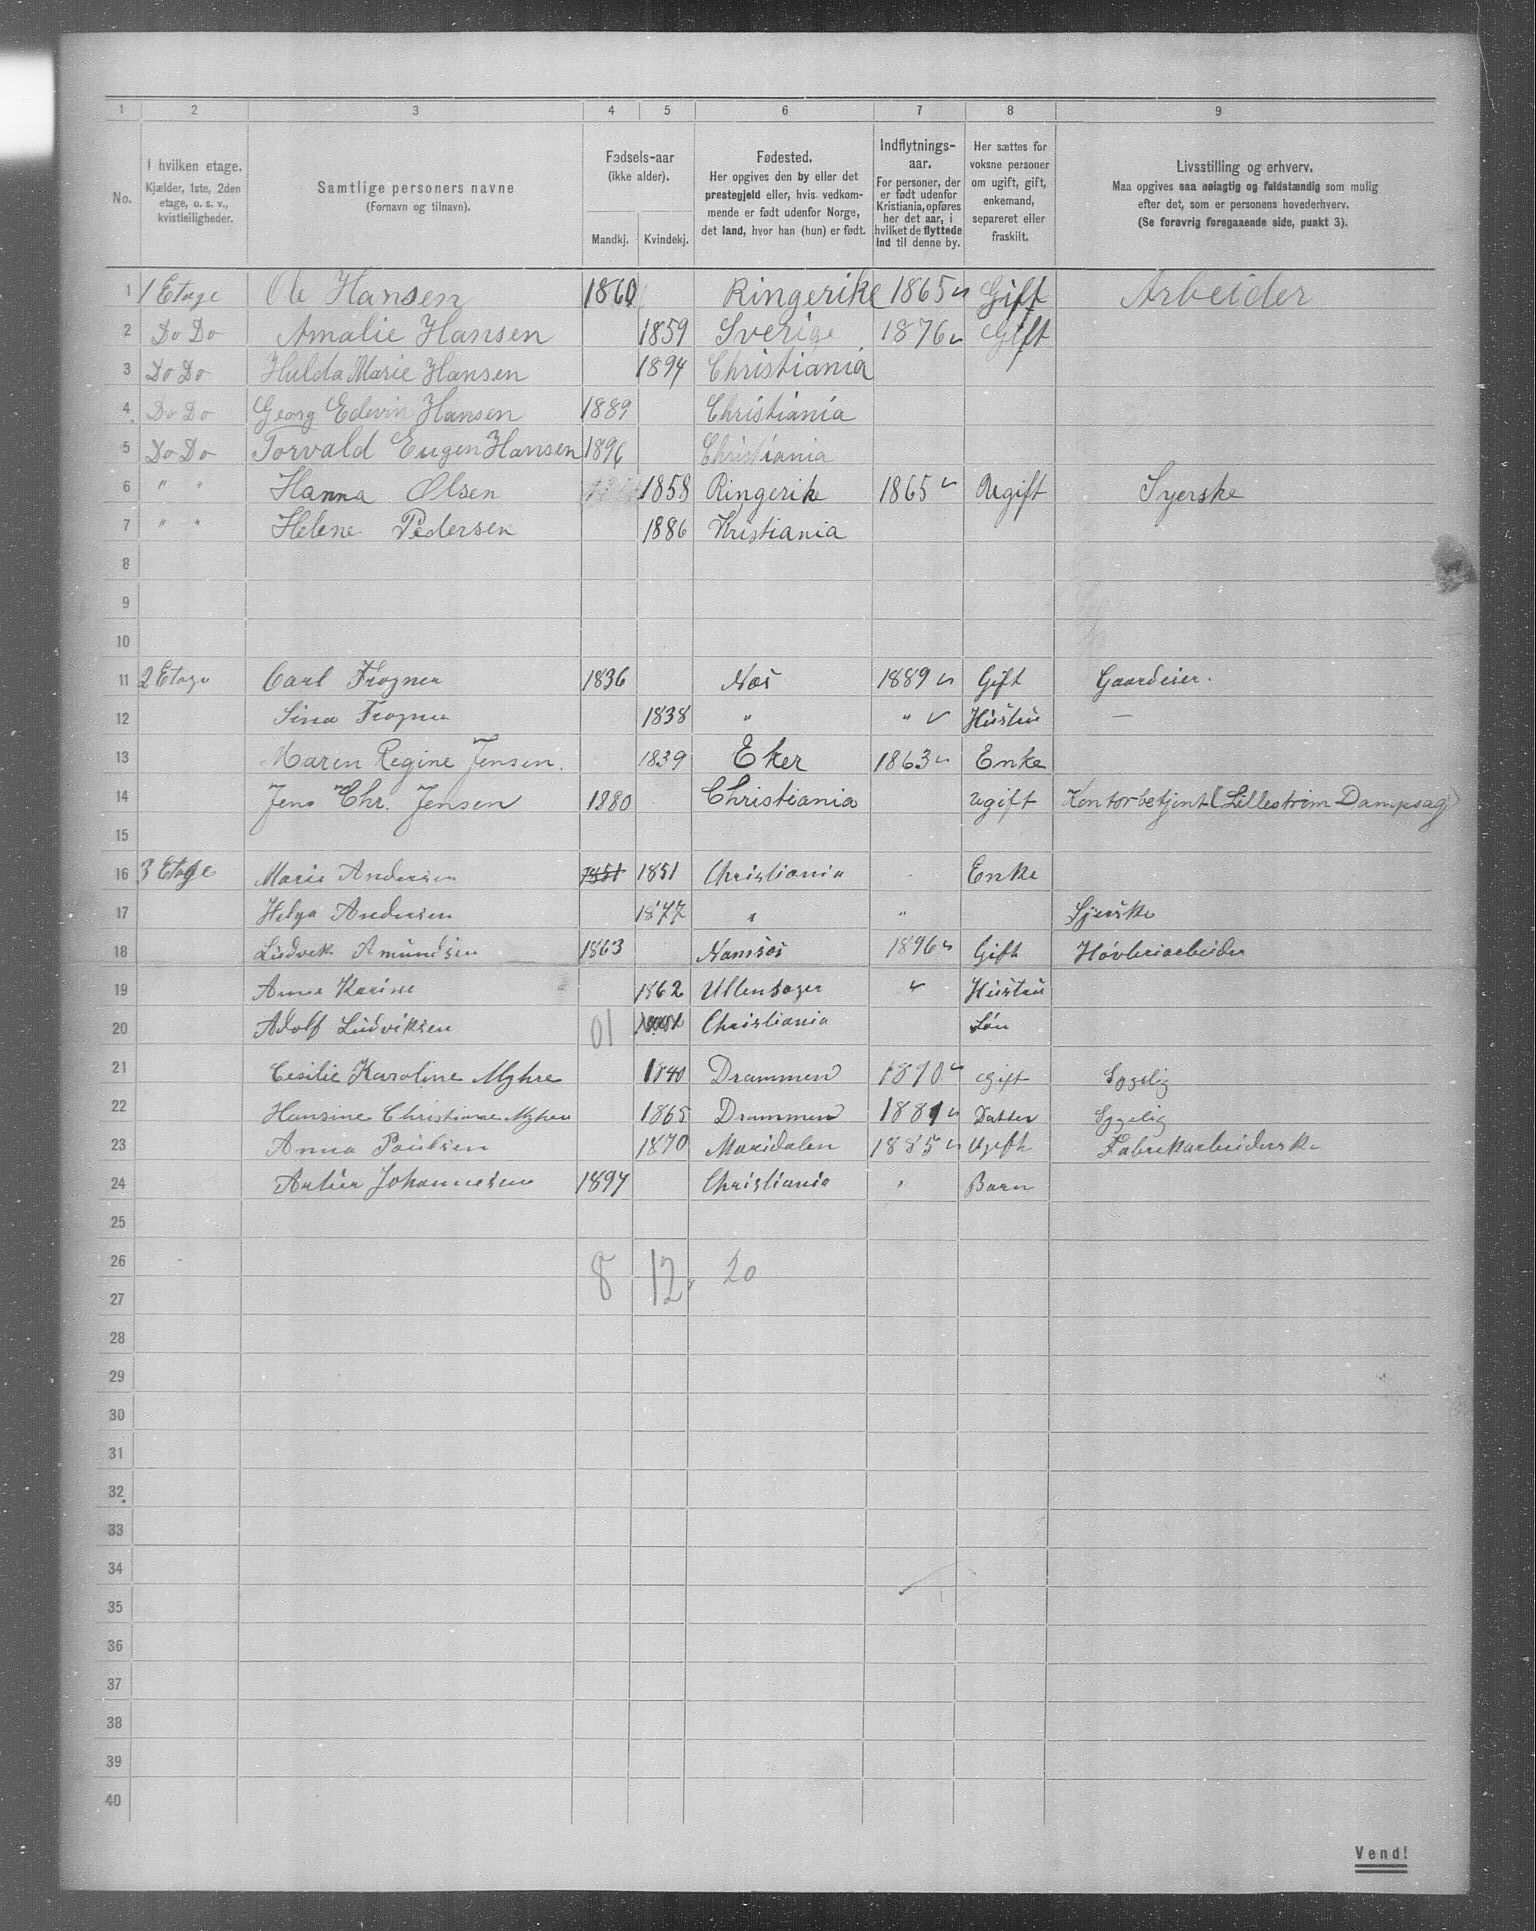 1 2 3 4 5 6 7 8 9
No.
I hvilken etage.
Kjælder, 1ste, 2den
etage, o. s. v.,
kvistleiligheder.
Samtlige personers navne
(Fornavn og tilnavn).
Fødsels-aar
(ikke alder).
Mandkj. Kvindekj.
Fødested.
Her opgives den by eller det
prestegjeld eller, hvis vedkom-
mende er født udenfor Norge,
det land, hvor han (hun) er født.
Indflytnings-
aar.
For personer, der
er født udenfor
Kristiania, opføres
her det aar, i
hvilket de flyttede
ind til denne by.
Her sættes for
voksne personer
om ugift, gift,
enkemand,
separeret eller
fraskilt.
Livsstilling og erhverv.
Maa opgives saa nøiagtig og fuldstændig som mulig
efter det, som er personens hovederhverv.
(Se forøvrig foregaaende side, punkt 3).
1 1 Etage Ole Hansen 1860 Ringerike 1865 Gift Arbeider
2 Do Do Amalie Hansen 1859 Sverige 1876 Gift
3 Do Do Hulda Marie Hansen 1894 Christiania
4 Do Do Georg Edevin Hansen 1889 Christiania
5 Do Do Torvald Eugen Hansen 1896 Christiania
6 " " Hanna Olsen 1858 Ringerike 1865 Ugift Syerske
7 " " Helene Pedersen 1886 Kristiania
8
9
10
11 2 Etage Carl Frogner 1836 Nes 1889 Gift Gaardeier.
12 Sina Frogner 1838 " " Hustru —
13 Maren Regine Jensen. 1839 Eker 1863 Enke
14 Jens Chr. Jensen 1880 Christiania ugift Kontorbetjent (Lillestrøm Dampsag)
15
16 3 Etage Marie Andersen 1851 1851 Christiania Enke
17 Helga Andersen 1877 " " Sjerske
18 Ludvik Amundsen 1863 Namsos 1896 Gift Høvleriarbeider
19 Anna Karine 1862 Ullensager " Hustru
20 Adolf Ludviksen 01 Christiania Søn
21 Cesilie Karoline Myhre 1840 Drammen 1890 Gift Sygelig
22 Hansine Christiane Myhre 1865 Drammen 1881 Datter Sygelig
23 Anna Paulsen 1870 Maridalen 1885 Ugift Fabrikarbeiderske
24 Artur Johannesen 1897 Christiania " Barn
25
26 8 12 20
27
28
29
30
31
32
33
34
35
36
37
38
39
40
Vend!